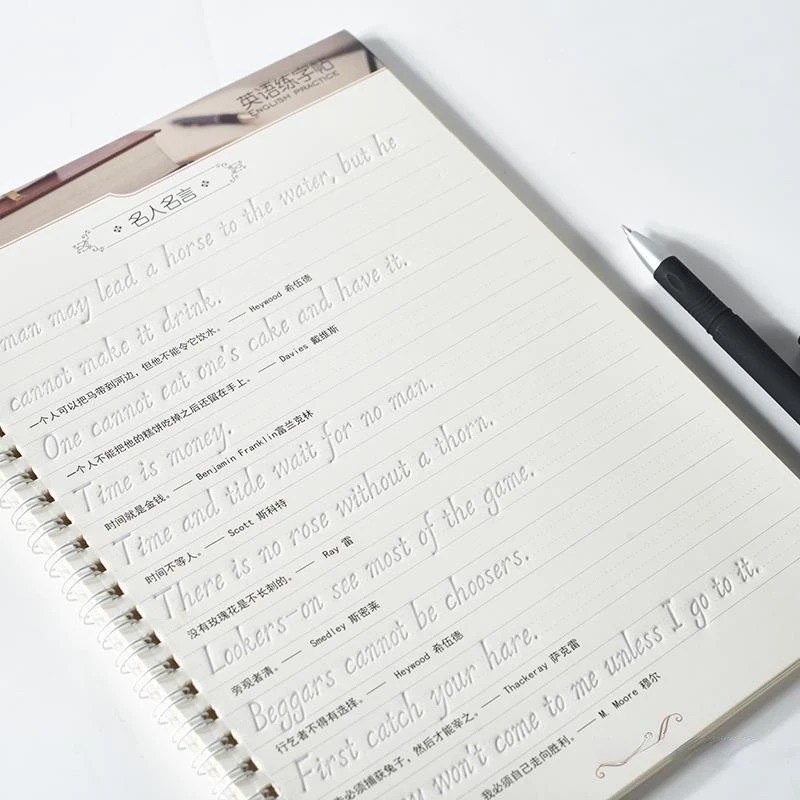 英语练字帖
ENGLISH PRACTICE
名人名言
man may lead a horse to the water, but he
cannot make it drink.
一个人可以把马带到河边，但他不能令它饮水。—— Heywood 希伍德
One cannot eat one's cake and have it.
一个人不能把他的糕饼吃掉之后还留在手上。—— Davies 戴维斯
Time is money.
时间就是金钱。—— Benjamin Franklin富兰克林
Time and tide wait for no man.
时间不等人。—— Scott 斯科特
There is no rose without a thorn.
没有玫瑰花是不长刺的。—— Ray 雷
Lookers-on see most of the game.
旁观者清。—— Smedley 斯密莱
Beggars cannot be choosers.
行乞者不得有选择。—— Heywood 希伍德
First catch your hare.
必须捕获兔子，然后才能宰之。—— Thackeray 萨克雷
won't come to me unless I go to it.
我必须自己走向胜利。—— M. Moore 穆尔